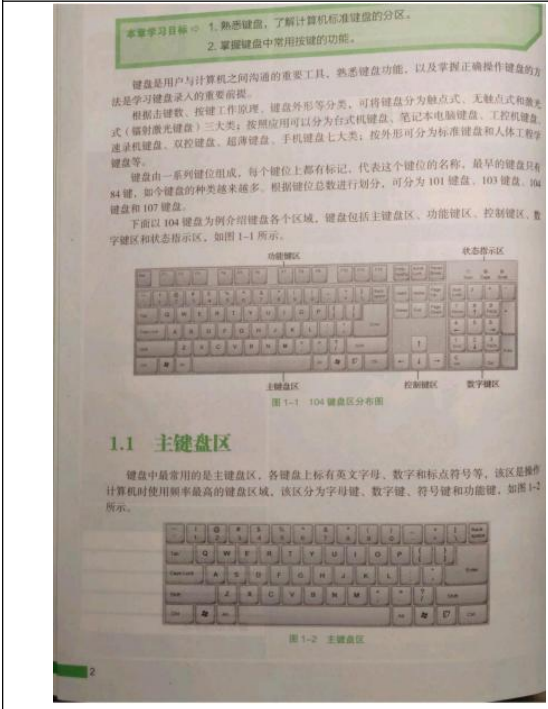 本章学习目标 ⇨ 1. 熟悉键盘，了解计算机标准键盘的分区。
2. 掌握键盘中常用按键的功能。
键盘是用户与计算机之间沟通的重要工具，熟悉键盘功能，以及掌握正确操作键盘的方
法是学习键盘录入的重要前提。
根据击键数、按键工作原理、键盘外形等分类，可将键盘分为触点式、无触点式和激光
式（镭射激光键盘）三大类；按照应用可以分为台式机键盘、笔记本电脑键盘、工控机键盘、
速录机键盘、双控键盘、超薄键盘、手机键盘七大类；按外形可分为标准键盘和人体工程学
键盘等。
键盘由一系列键位组成，每个键位上都有标记，代表这个键位的名称，最早的键盘只有
84 键，如今键盘的种类越来越多。根据键位总数进行划分，可分为 101 键盘、103 键盘、104
键盘和 107 键盘。
下面以 104 键盘为例介绍键盘各个区域，键盘包括主键盘区、功能键区、控制键区、数
字键区和状态指示区，如图 1-1 所示。
功能键区 状态指示区
主键盘区 控制键区 数字键区
图 1-1 104 键盘区分布图
1.1 主键盘区
键盘中最常用的是主键盘区，各键盘上标有英文字母、数字和标点符号等，该区是操作
计算机时使用频率最高的键盘区域，该区分为字母键、数字键、符号键和功能键，如图 1-2
所示。
Q W E R T Y U I O P
A S D F G H J K L
Z X C V B N M
图 1-2 主键盘区
2